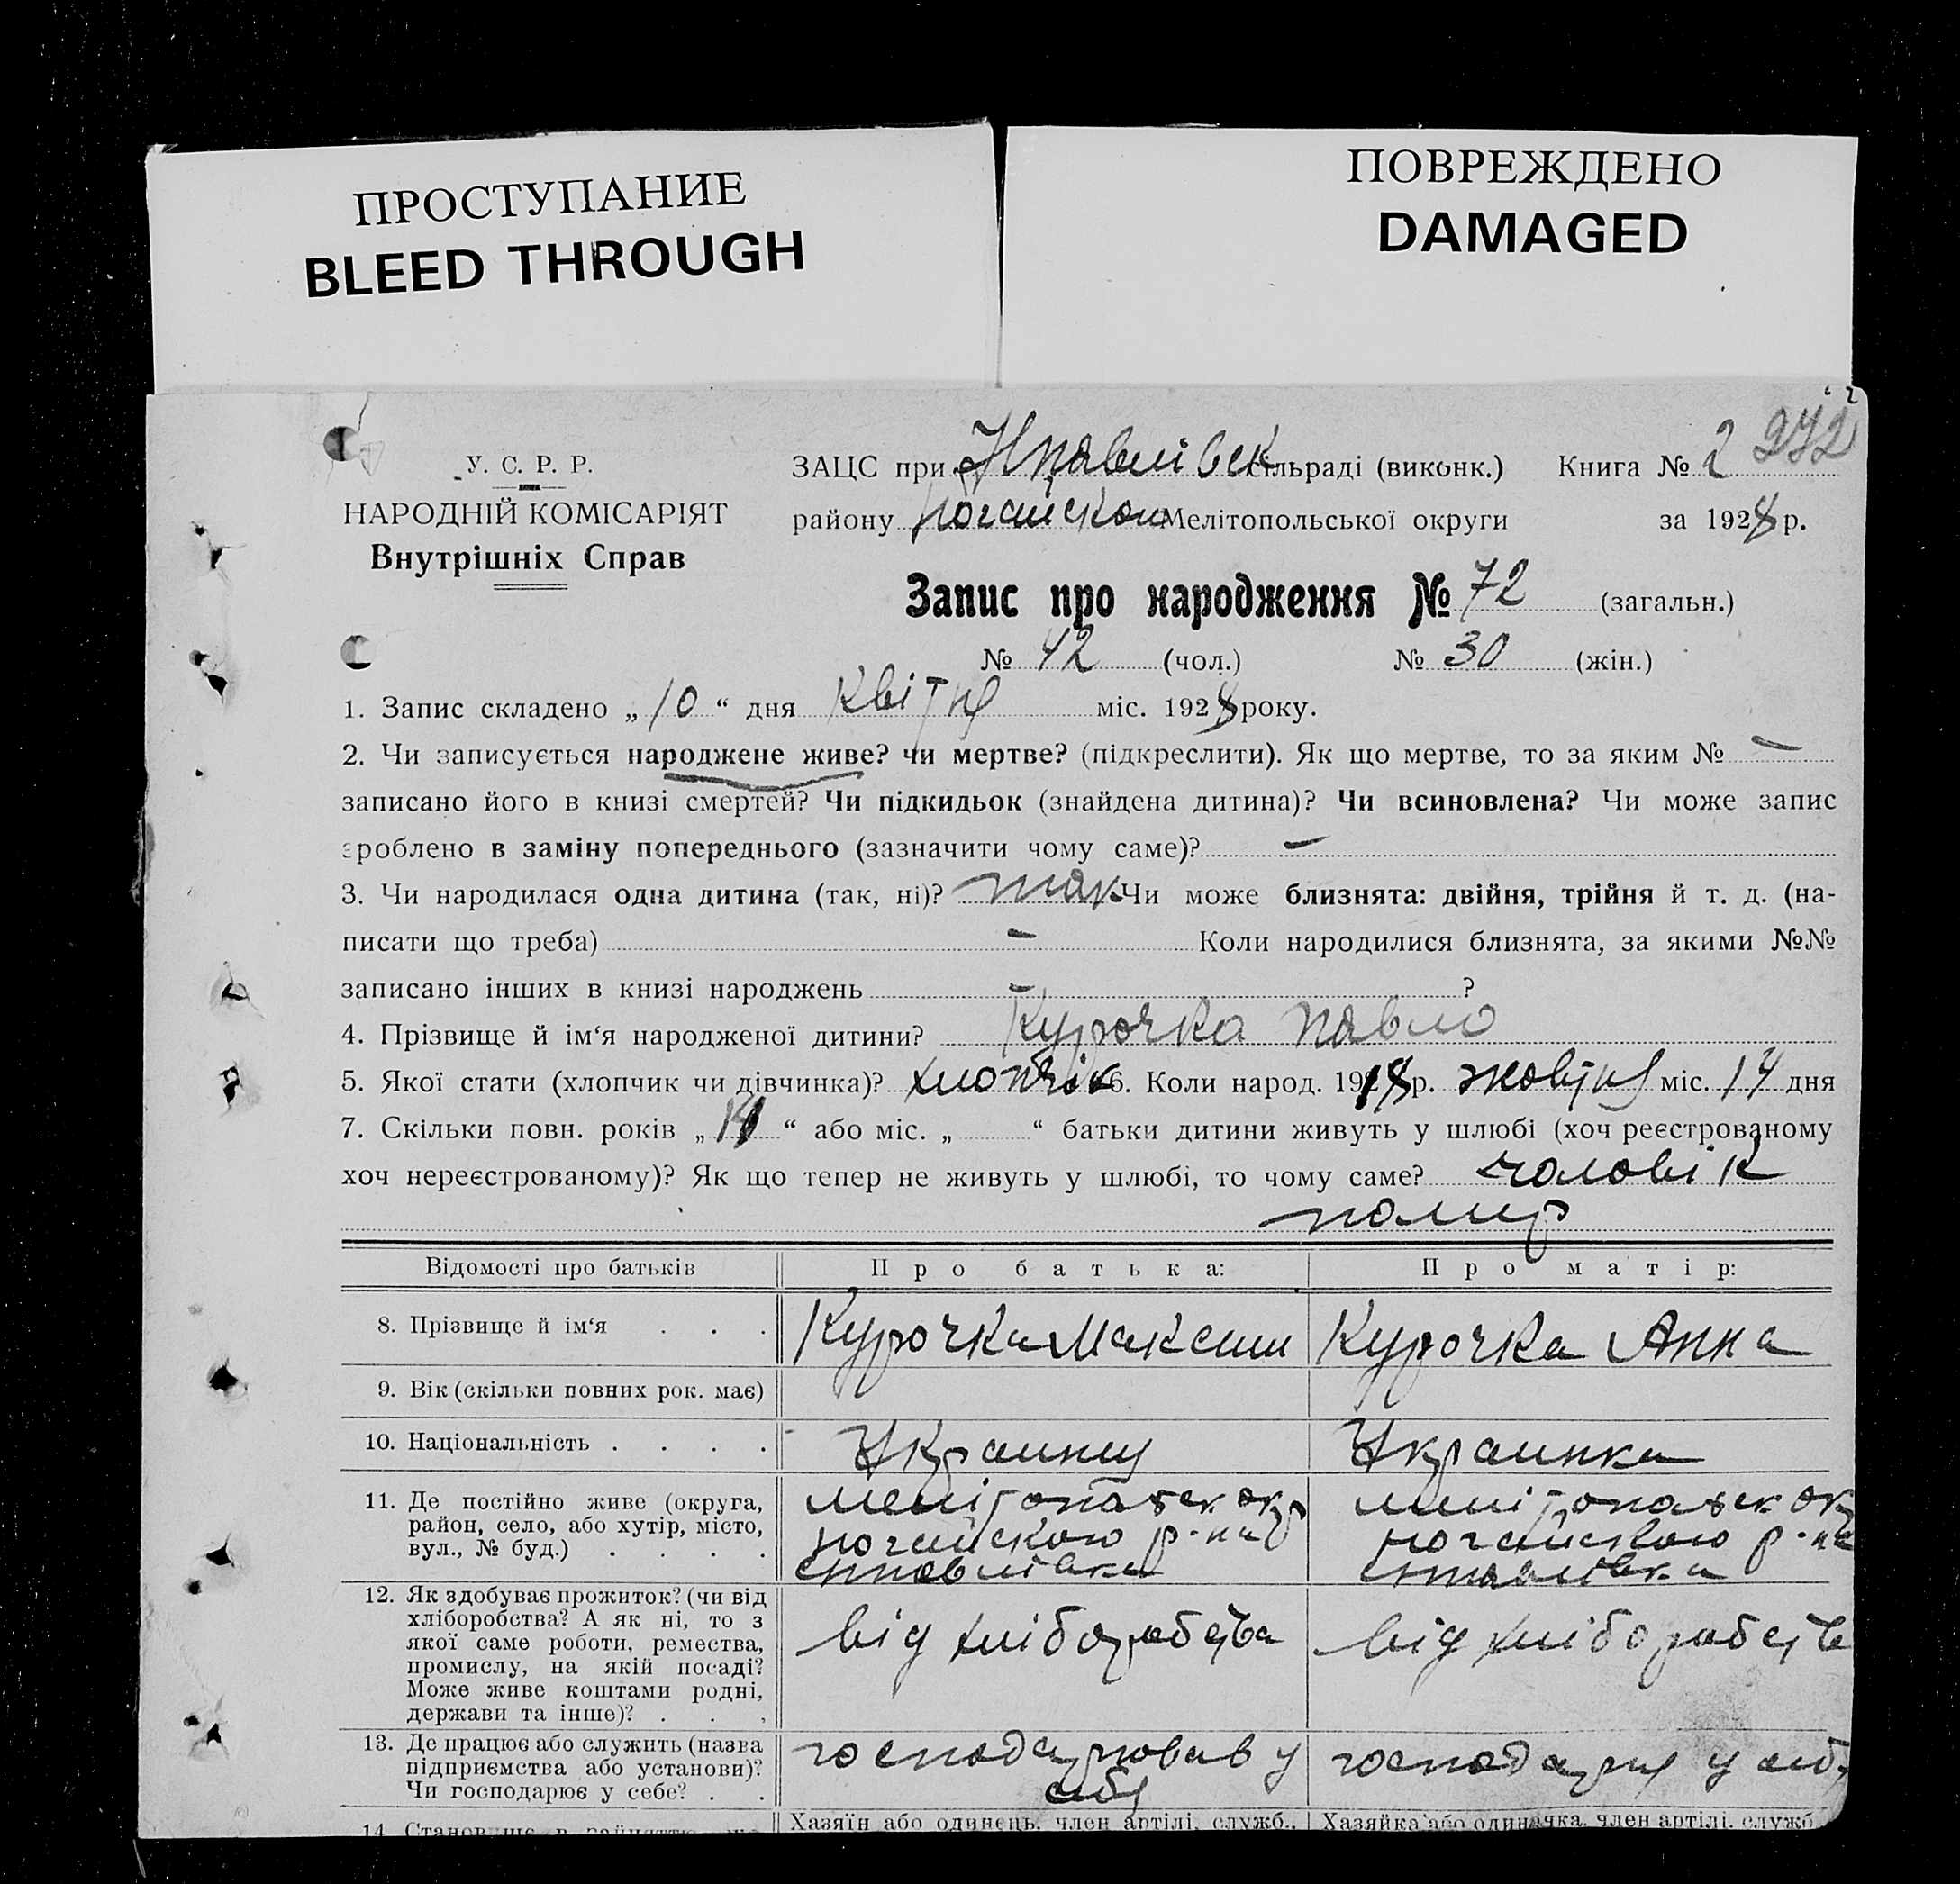 ПРОСТУПАНИЕ
BLEED THROUGH
ПОВРЕЖДЕНО
DAMAGED
У. С. Р. Р.
НАРОДНІЙ КОМІСАРІЯТ
Внутрішніх Справ
ЗАЦС при Нпавлівск сільраді (виконк.) Книга № 2 272
району Ногайского Мелітопольської округи за 1928 р.
Запис про народження № 72 (загальн.)
№ 42 (чол.) № 30 (жін.)
1. Запис складено „ 10 “ дня Квітня міс. 1928 року.
2. Чи записується народжене живе? чи мертве? (підкреслити). Як що мертве, то за яким № —
записано його в книзі смертей? Чи підкидьок (знайдена дитина)? Чи всиновлена? Чи може запис
зроблено в заміну попереднього (зазначити чому саме)? —
3. Чи народилася одна дитина (так, ні)? так Чи може близнята: двійня, трійня й т. д. (на-
писати що треба) — Коли народилися близнята, за якими №№
записано інших в книзі народжень — ?
4. Прізвище й ім‘я народженої дитини? Курочка Павло
5. Якої стати (хлопчик чи дівчинка)? хлопчік 6. Коли народ. 1918 р. жовтня міс. 14 дня
7. Скільки повн. років „ “ або міс. „ “ батьки дитини живуть у шлюбі (хоч реєстрованому
хоч нереєстрованому)? Як що тепер не живуть у шлюбі, то чому саме? чоловік
помир
Відомості про батьків Про батька: Про матір:
8. Прізвище й ім‘я . . . Курочка Максим Курочка Анна
9. Вік (скільки повних рок. має)
10. Національність . . . . Украинец Украинка
11. Де постійно живе (округа,
район, село, або хутір, місто,
вул., № буд.) . . . .
мелітопольск ок
ногайского р-на
мелітопольск ок
ногайского р-на
12. Як здобуває прожиток? (чи від
хліборобства? А як ні, то з
якої саме роботи, ремества,
промислу, на якій посаді?
Може живе коштами родні,
держави та інше)? . . .
від хліборобства
від хліборобств
13. Де працює або служить (назва
підприємства або установи)?
Чи господарює у себе? . .
господарював у
себя
господарня у себ
14. Становище в занятті
Хазяїн або одинець, член артілі, служб.,
Хазяйка або одиначка, член артілі, служб